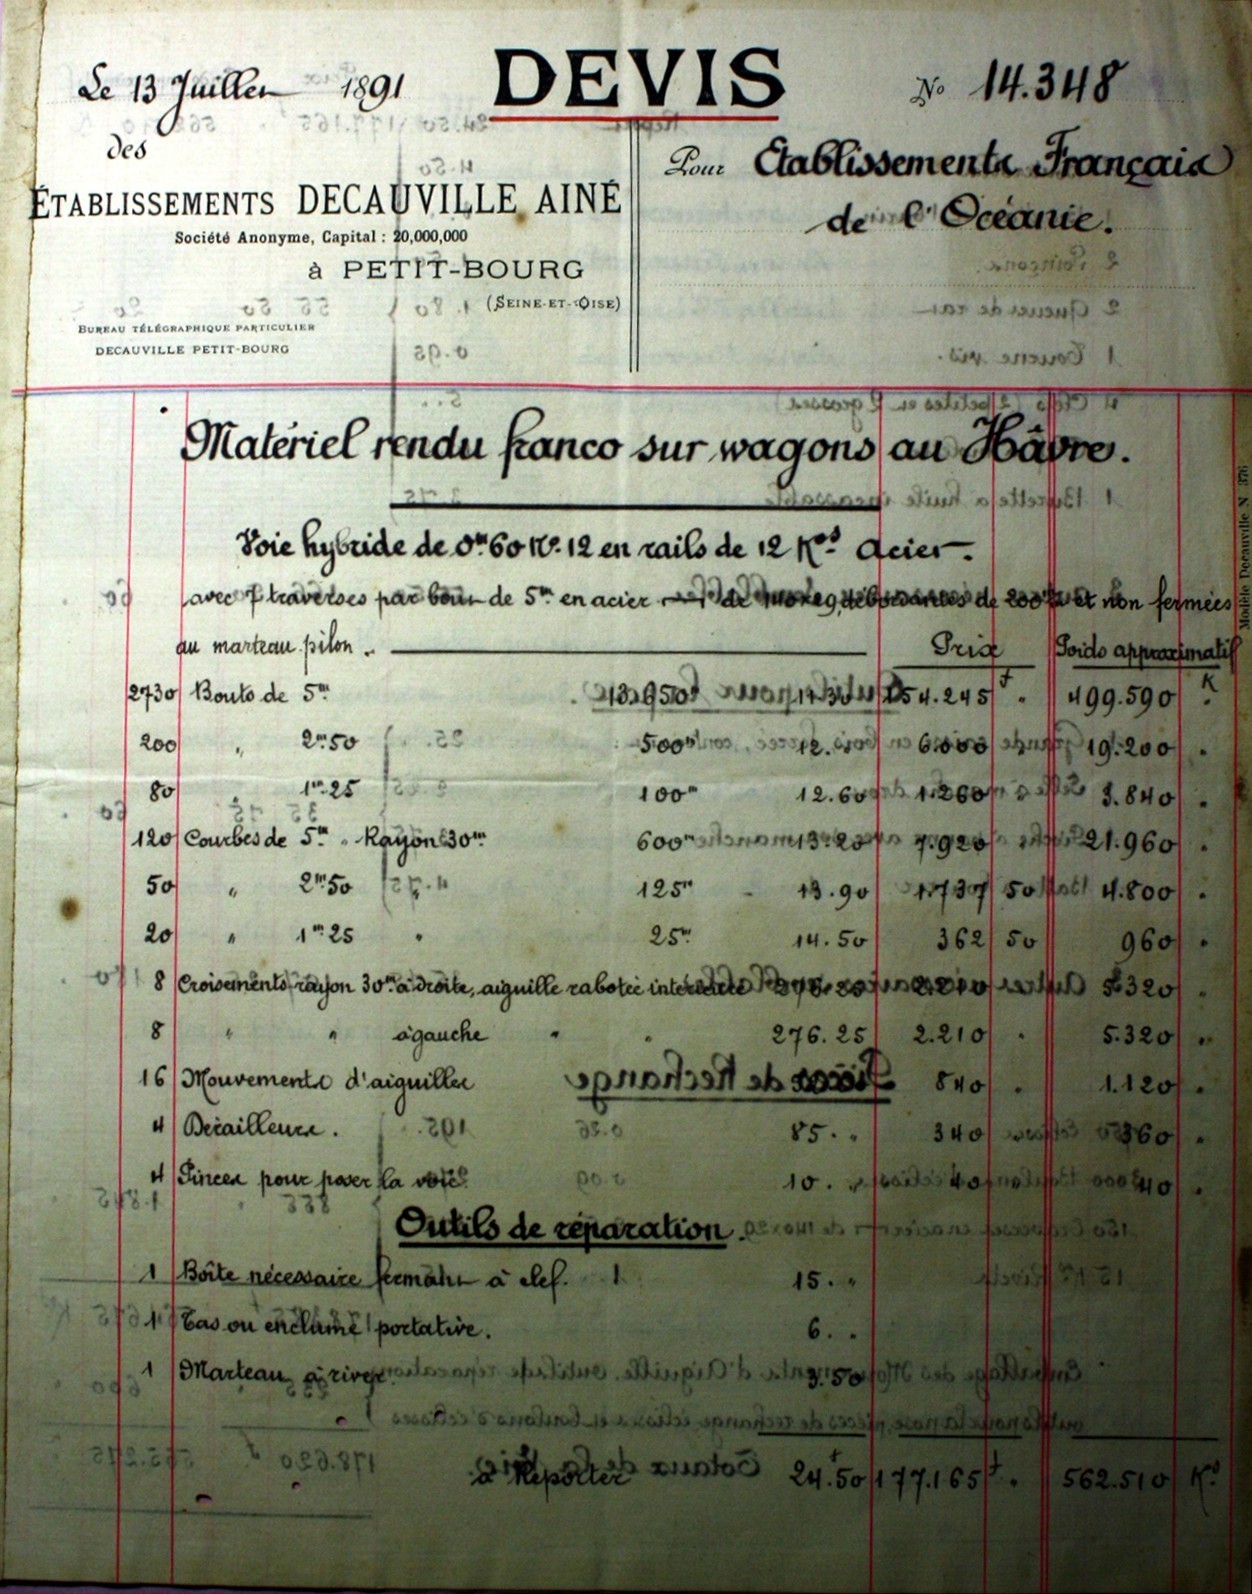 Le 13 Juillet 1891
DEVIS
No 14.348
des
ÉTABLISSEMENTS DECAUVILLE AINÉ
Société Anonyme, Capital : 20,000,000
à PETIT-BOURG
(SEINE-ET-OISE)
BUREAU TÉLÉGRAPHIQUE PARTICULIER
DECAUVILLE PETIT-BOURG
Pour Etablissements Français
de l'Océanie.
Modèle Decauville N 376
Matériel rendu franco sur wagons au Hâvre.
Voie hybride de 0m60 No. 12 en rails de 12 Kos acier.
avec 7 traverses par bout de 5m en acier de débordantes de et non fermées
au marteau pilon. Prix Poids approximatif
2730 Bouts de 5m 13.950m 154.245f. 499.590 K.
200 " 2m50 500m 12. 6.000 19.200 .
80 " 1m25 100m 12.60 1.260 3.840 .
120 Courbes de 5m " Rayon 30m 600m 13.20 7.920 21.960 .
50 " 2m50 125m 13.90 1.737 50 4.800 .
20 " 1m25 " 25m 14.50 362 50 960 .
8 Croisements rayon 30m à droite, aiguille rabotée 2.210 5.320 .
8 " " à gauche " " 276.25 2.210 . 5.320 "
16 Mouvements d'aiguilles 840 . 1.120 .
4 Dérailleurs. 85. " 340 360 "
4 Pinces pour poser la voie 10. " 40 40 .
Outils de réparation.
1 Boîte nécessaire fermant à clef. 15. "
1 Tas ou enclume portative. 6. .
1 Marteau à river. 3.50
à Reporter 24.50 177.165f . 562.510 Ks